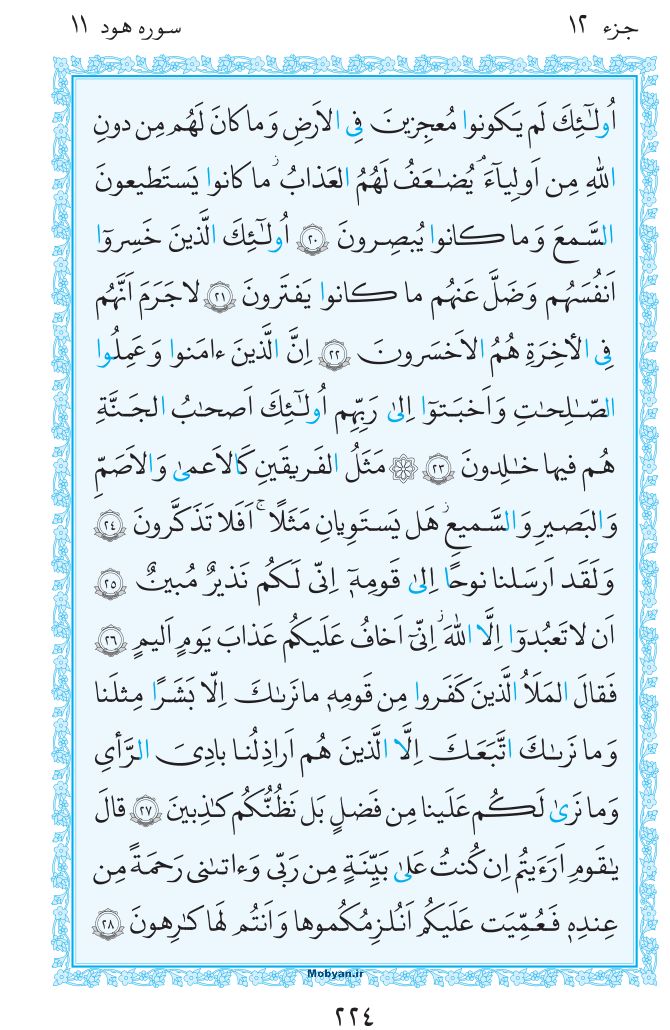 جزء ١٢
سوره هود ١١
اُولٰٓئِكَ لَم يَكونوا مُعجِزينَ فِي الاَرضِ وَما كانَ لَهُم مِن دونِ
اللهِ مِن اَولِيآءَ ۘ يُضٰعَفُ لَهُمُ العَذابُ ۚ ما كانوا يَستَطيعونَ
السَّمعَ وَما كانوا يُبصِرونَ ﴿٢٠﴾ اُولٰٓئِكَ الَّذينَ خَسِروٓا
اَنفُسَهُم وَضَلَّ عَنهُم ما كانوا يَفتَرونَ ﴿٢١﴾ لا جَرَمَ اَنَّهُم
فِي الأخِرَةِ هُمُ الاَخسَرونَ ﴿٢٢﴾ اِنَّ الَّذينَ ءامَنوا وَعَمِلُوا
الصّٰلِحٰتِ وَاَخبَتوٓا اِلىٰ رَبِّهِم اُولٰٓئِكَ اَصحٰبُ الجَنَّةِ
هُم فيها خٰلِدونَ ﴿٢٣﴾ ۞ مَثَلُ الفَريقَينِ كَالاَعمىٰ وَالاَصَمِّ
وَالبَصيرِ وَالسَّميعِ ۚ هَل يَستَوِيانِ مَثَلًا ۚ اَفَلا تَذَكَّرونَ ﴿٢٤﴾
وَلَقَد اَرسَلنا نوحًا اِلىٰ قَومِهٓ اِنّي لَكُم نَذيرٌ مُبينٌ ﴿٢٥﴾
اَن لا تَعبُدوٓا اِلَّا اللهَ ۖ اِنّيٓ اَخافُ عَلَيكُم عَذابَ يَومٍ اَليمٍ ﴿٢٦﴾
فَقالَ المَلَاُ الَّذينَ كَفَروا مِن قَومِهٖ ما نَرىٰكَ اِلّا بَشَرًا مِثلَنا
وَما نَرىٰكَ اتَّبَعَكَ اِلَّا الَّذينَ هُم اَراذِلُنا بادِيَ الرَّأيِ
وَما نَرىٰ لَكُم عَلَينا مِن فَضلٍ بَل نَظُنُّكُم كٰذِبينَ ﴿٢٧﴾ قالَ
يٰقَومِ اَرَءَيتُم اِن كُنتُ عَلىٰ بَيِّنَةٍ مِن رَبّي وَءاتىٰني رَحمَةً مِن
عِندِهٖ فَعُمِّيَت عَلَيكُم اَنُلزِمُكُموها وَاَنتُم لَها كٰرِهونَ ﴿٢٨﴾
Mobyan.ir
٢٢٤